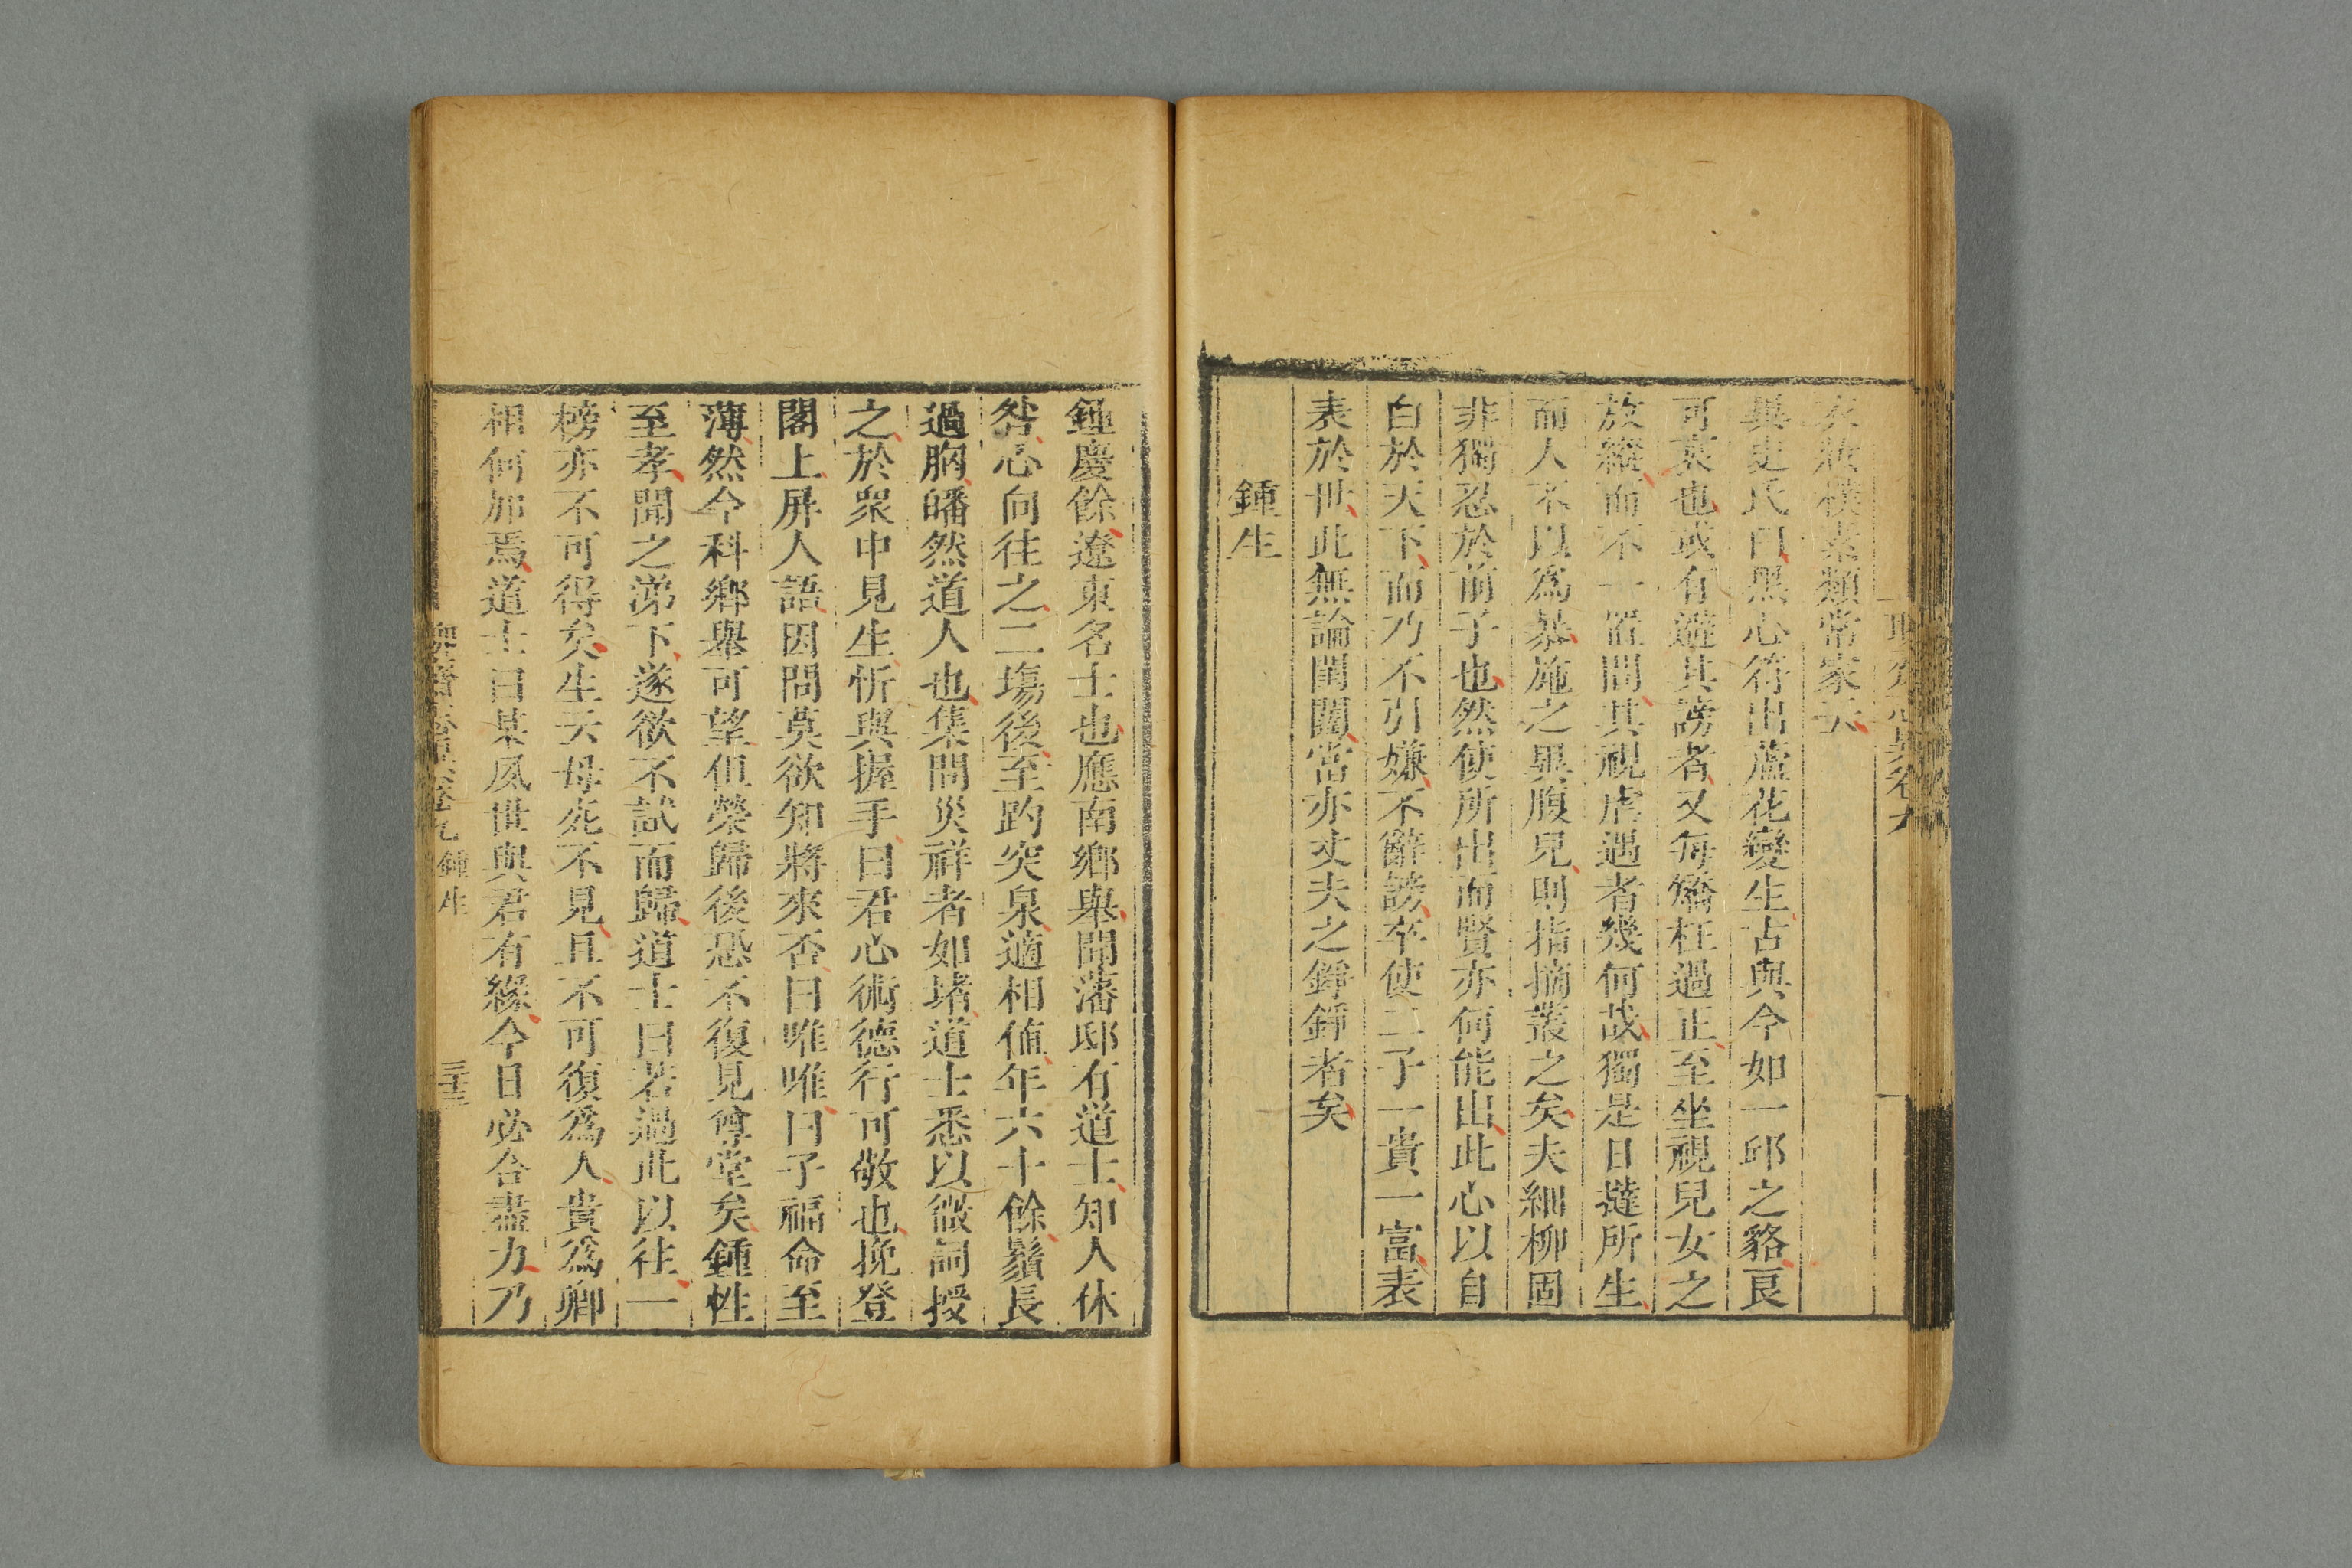 衣妝樸素類常家云
異史氏曰黑心符出蘆花變生古與今如一邱之貉良
可哀也或有避其謗者又每矯枉過正至坐視兒女之
放縱而不一置問其視虐遇者幾何哉獨是日撻所生
而人不以為暴施之異腹兒則指摘叢之矣夫細柳固
非獨忍於前子也然使所出而賢亦何能出此心以自
白於天下而乃不引嫌不辭謗卒使二子一貴一富表
表於世此無論閨闥當亦丈夫之錚錚者矣
鍾生
鍾慶餘遼東名士也應南鄉舉聞藩邸有道士知人休
咎心向往之二塲後至趵突泉適相值年六十餘鬚長
過胸皤然道人也集問災祥者如堵道士悉以微詞授
之於衆中見生忻與握手曰君心術德行可敬也挽登
閣上屏人語因問莫欲知將來否曰唯唯曰子福命至
薄然今科鄉舉可望但榮歸後恐不復見尊堂矣鍾性
至孝聞之涕下遂欲不試而歸道士曰若過此以往一
榜亦不可得矣生云母死不見且不可復為人貴為卿
相何加焉道士曰某夙世與君有緣今日必合盡力乃
卷九 鍾生